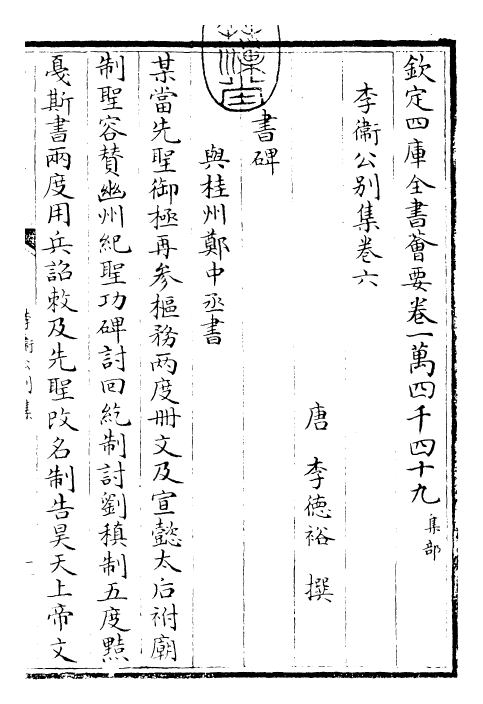 欽定四庫全書薈要卷一萬四千四十九 集部
李衛公别集卷六
唐 李德裕 撰
書碑
與桂州鄭中丞書
某當先聖御極再參樞務两度冊文及宣懿太后祔廟
制聖容賛幽州紀聖功碑討回紇制討劉稹制五度黠
戛斯書兩度用兵詔敕及先聖改名制告昊天上帝文
李衛公别集